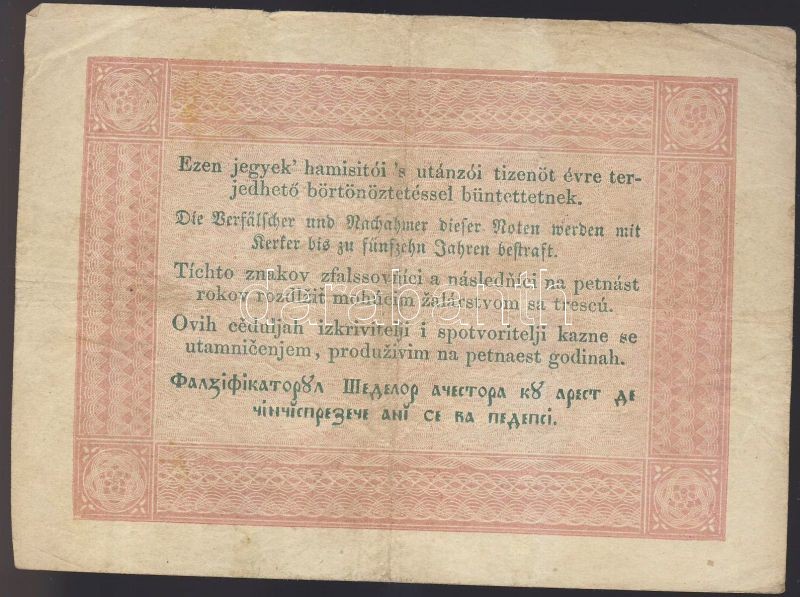 Ezen jegyek' hamisitói 's utánzói tizenöt évre ter-
jedhető börtönöztetéssel büntettetnek.
Die Verfälscher und Nachahmer dieser Noten werden mit
Kerker bis zu fünfzehn Jahren bestraft.
Tíchto znakov zfalssovňíci a následňíci na petnást
rokov rozdlžit mohúcim žalárstvom sa trescú.
Ovih cĕduljah izkrivitelji i spotvoritelji kazne se
utamničenjem, produživim na petnaest godinah.
Фалзіфікаторꙋл Шеделор ачестора кꙋ арест де
чінчіспрезече ані се ва педепсі.
darabanth